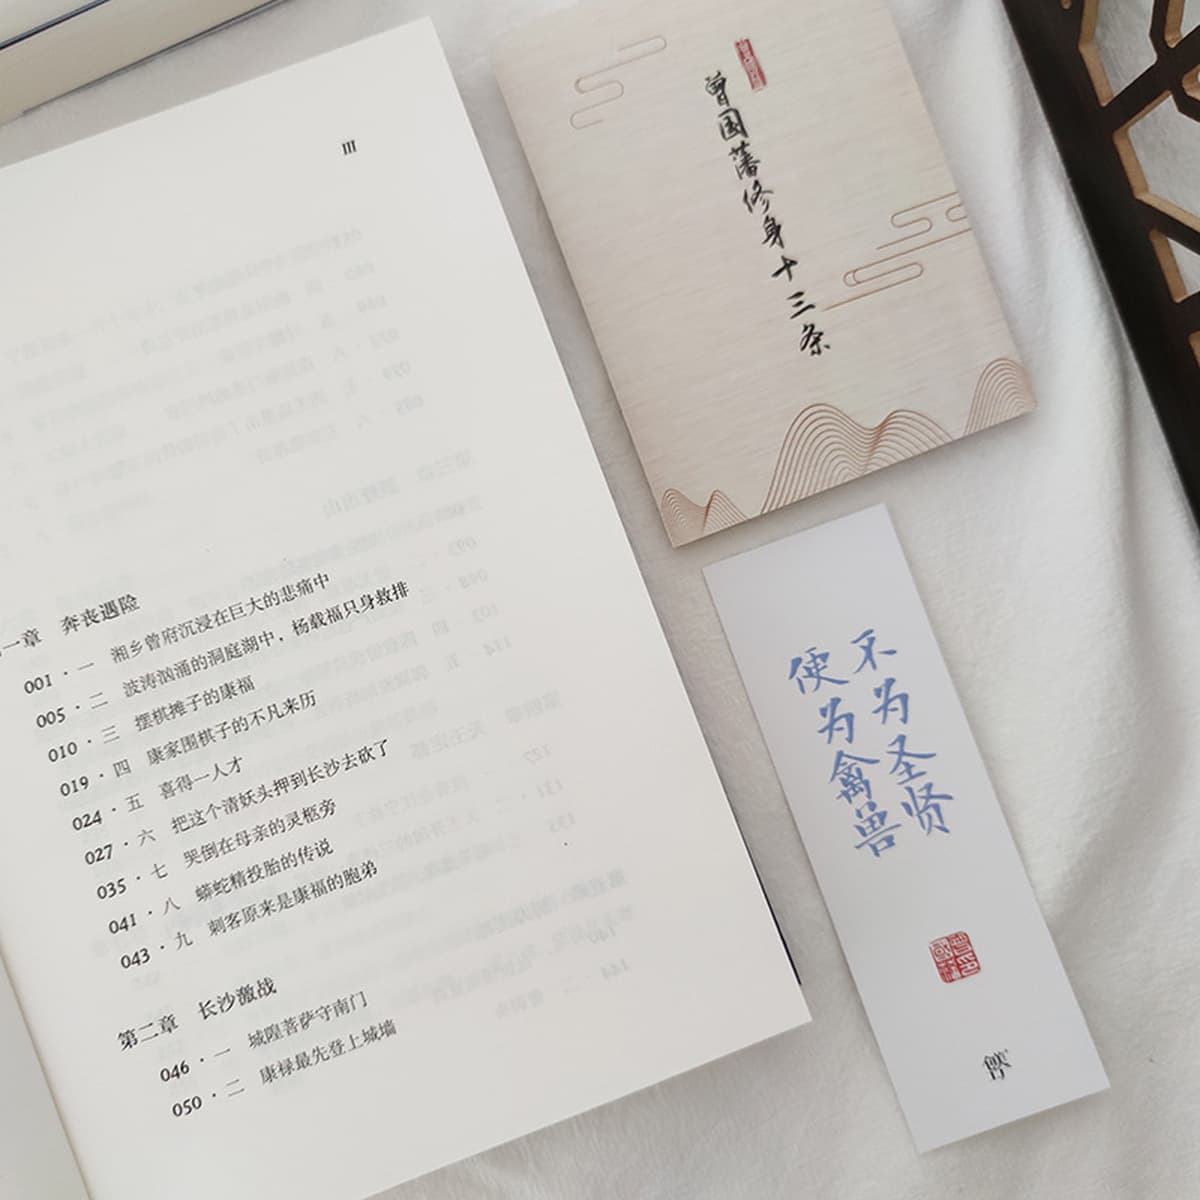 III
一章 奔丧遇险
001·一 湘乡曾府沉浸在巨大的悲痛中
005·二 波涛汹涌的洞庭湖中，杨载福只身救排
010·三 摆棋摊子的康福
019·四 康家围棋子的不凡来历
024·五 喜得一人才
027·六 把这个清妖头押到长沙去砍了
035·七 哭倒在母亲的灵柩旁
041·八 蟒蛇精投胎的传说
043·九 刺客原来是康福的胞弟
第二章 长沙激战
046·一 城隍菩萨守南门
050·二 康禄最先登上城墙
曾国藩修身十三条
不为圣贤
便为禽兽